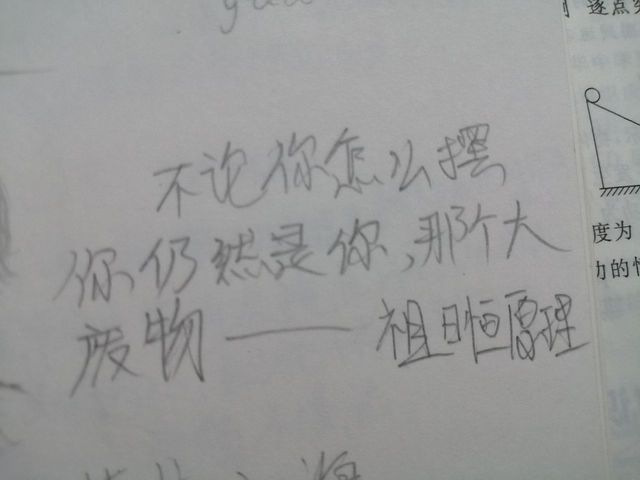 逐点
不论你怎么摆
你仍然是你,那个大
废物——祖日恒原理
度为
力的